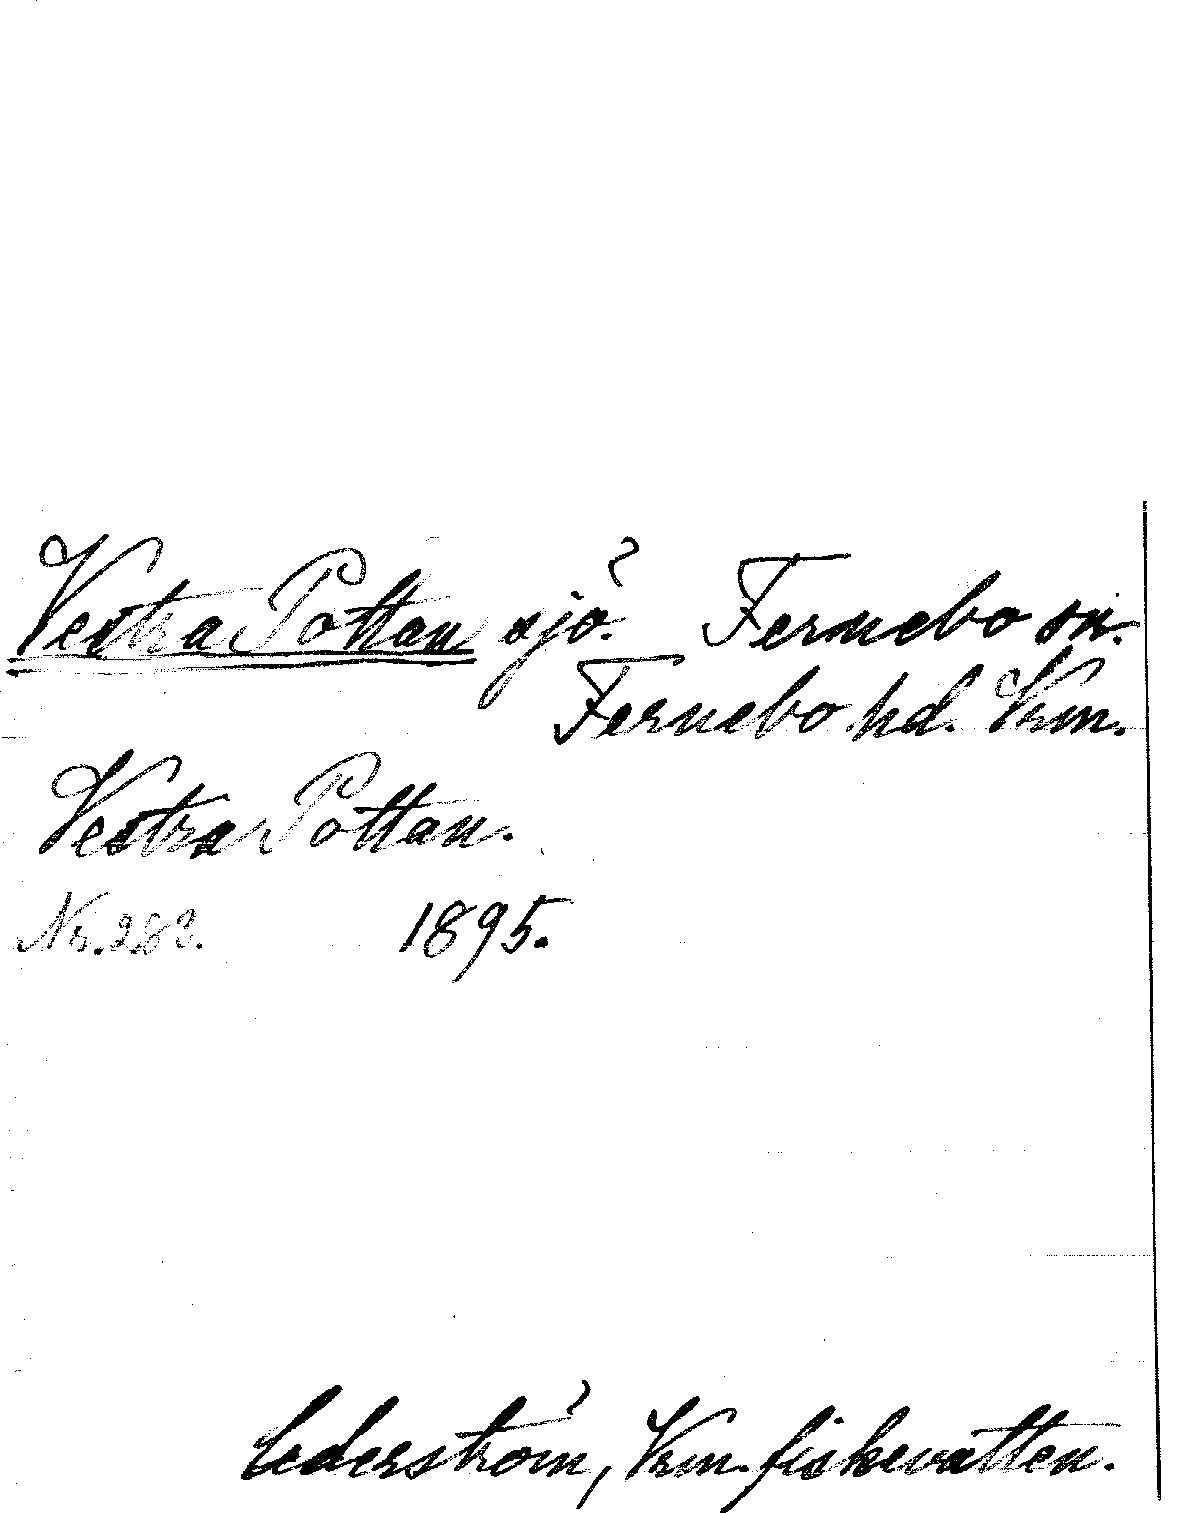 Vestra Pottan sjö. Fernebo sn.
Fernebo hd. Vrm.
Vestra Pottan.
Nr. 283. 1895.
Cederström, Vrm. fiskevatten.